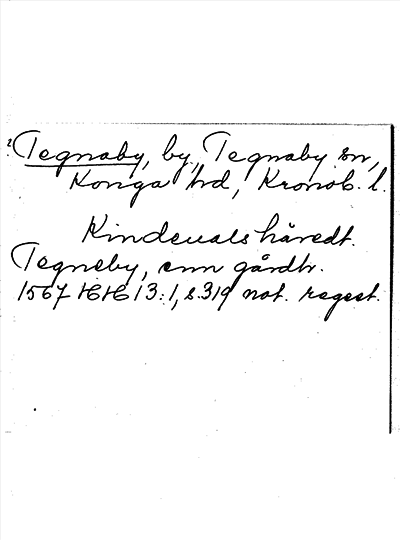 ? Tegnaby, by, Tegnaby sn,
Konga hd, Kronob. l.
Kindeualshäredt.
Tegneby, enn gårdtr.
1567 HH 13:1, s.319 not. regest.